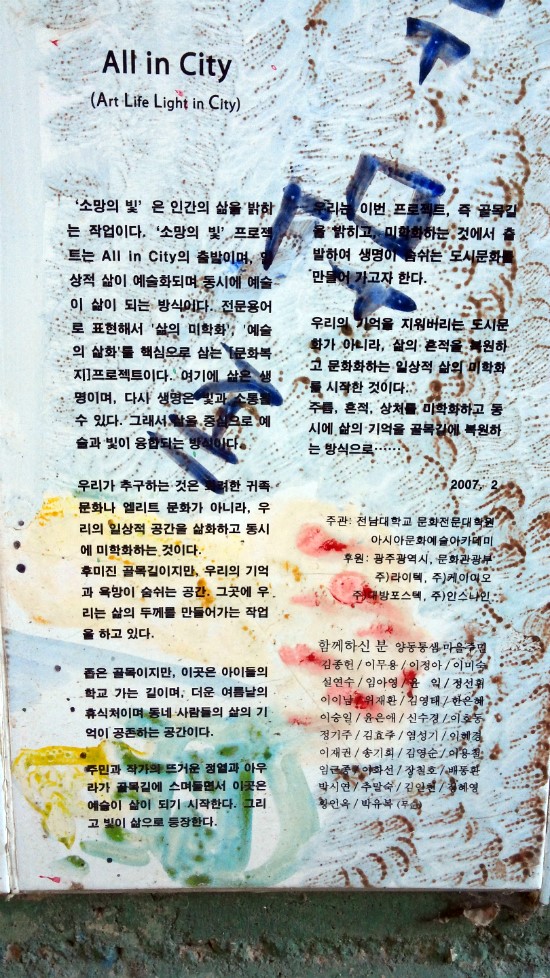 All in City
(Art Life Light in City)
‘소망의 빛’ 은 인간의 삶을 밝히
는 작업이다. ‘소망의 빛’ 프로젝
트는 All in City의 출발이며, 일
상적 삶이 예술화되며 동시에 예술
이 삶이 되는 방식이다. 전문용어
로 표현해서 '삶의 미학화', '예술
의 삶화'를 핵심으로 삼는 [문화복
지]프로젝트이다. 여기에 삶은 생
명이며, 다시 생명은 빛과 소통될
수 있다. 그래서 삶을 중심으로 예
술과 빛이 융합되는 방식이다.
우리가 추구하는 것은 화려한 귀족
문화나 엘리트 문화가 아니라, 우
리의 일상적 공간을 삶화하고 동시
에 미학화하는 것이다.
후미진 골목길이지만, 우리의 기억
과 욕망이 숨쉬는 공간. 그곳에 우
리는 삶의 두께를 만들어가는 작업
을 하고 있다.
좁은 골목이지만, 이곳은 아이들의
학교 가는 길이며, 더운 여름날의
휴식처이며 동네 사람들의 삶의 기
억이 공존하는 공간이다.
주민과 작가의 뜨거운 정열과 아우
라가 골목길에 스며들면서 이곳은
예술이 삶이 되기 시작한다. 그리
고 빛이 삶으로 등장한다.
우리는 이번 프로젝트, 즉 골목길
을 밝히고, 미학화하는 것에서 출
발하여 생명이 숨쉬는 도시문화를
만들어 가고자 한다.
우리의 기억을 지워버리는 도시문
화가 아니라, 삶의 흔적을 복원하
고 문화화하는 일상적 삶의 미학화
를 시작한 것이다.
주름, 흔적, 상처를 미학화하고 동
시에 삶의 기억을 골목길에 복원하
는 방식으로……
2007. 2
주관: 전남대학교 문화전문대학원
아시아문화예술아카데미
후원: 광주광역시, 문화관광부
주)라이텍, 주)케이이오
주)대방포스텍, 주)인스나인
함께하신 분 양동통샘 마을주민
김종헌 / 이무용 / 이정아 / 이미숙
설연수 / 임아영 / 윤 익 / 정선휘
이이남 / 위재환 / 김영태 / 한은혜
이승일 / 윤은애 / 신수경 / 이호동
정기주 / 김효주 / 염성기 / 이혜경
이재권 / 송기희 / 김영순 /
임근종 / 이화선 / 장철호 / 배동환
박시연 / 추말숙 / 김인헌 / 정혜영
황인옥 / 박유복